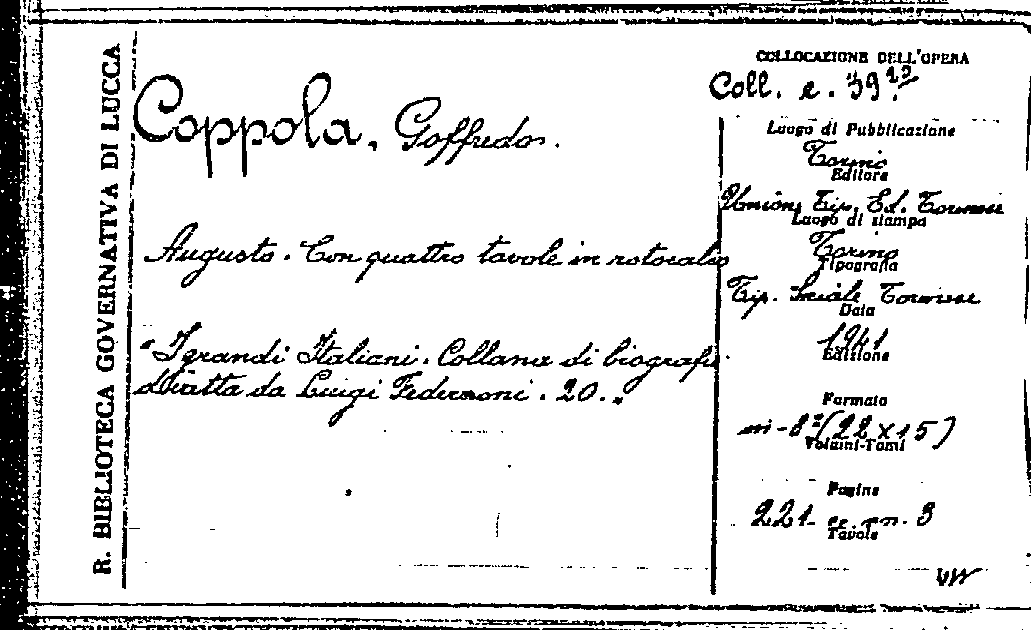 R. BIBLIOTECA GOVERNATIVA DI LUCCA
Coppola, Goffredo.
Augusto. Con quattro tavole in rotocalco
"I grandi Italiani. Collana di biografie
diretta da Luigi Federzoni. 20."
COLLOCAZIONE DELL'OPERA
Coll. e. 39
Luogo di Pubblicazione
Torino
Editore
Unione Tip. Ed. Torinese
Luogo di stampa
Torino
Tipografia
Tip. Sociale Torinese
Data
1941
Edizione
Formato
in-8° (22 x 15)
Volumi-Tomi
Pagine
221 e nn. 3
Tavole